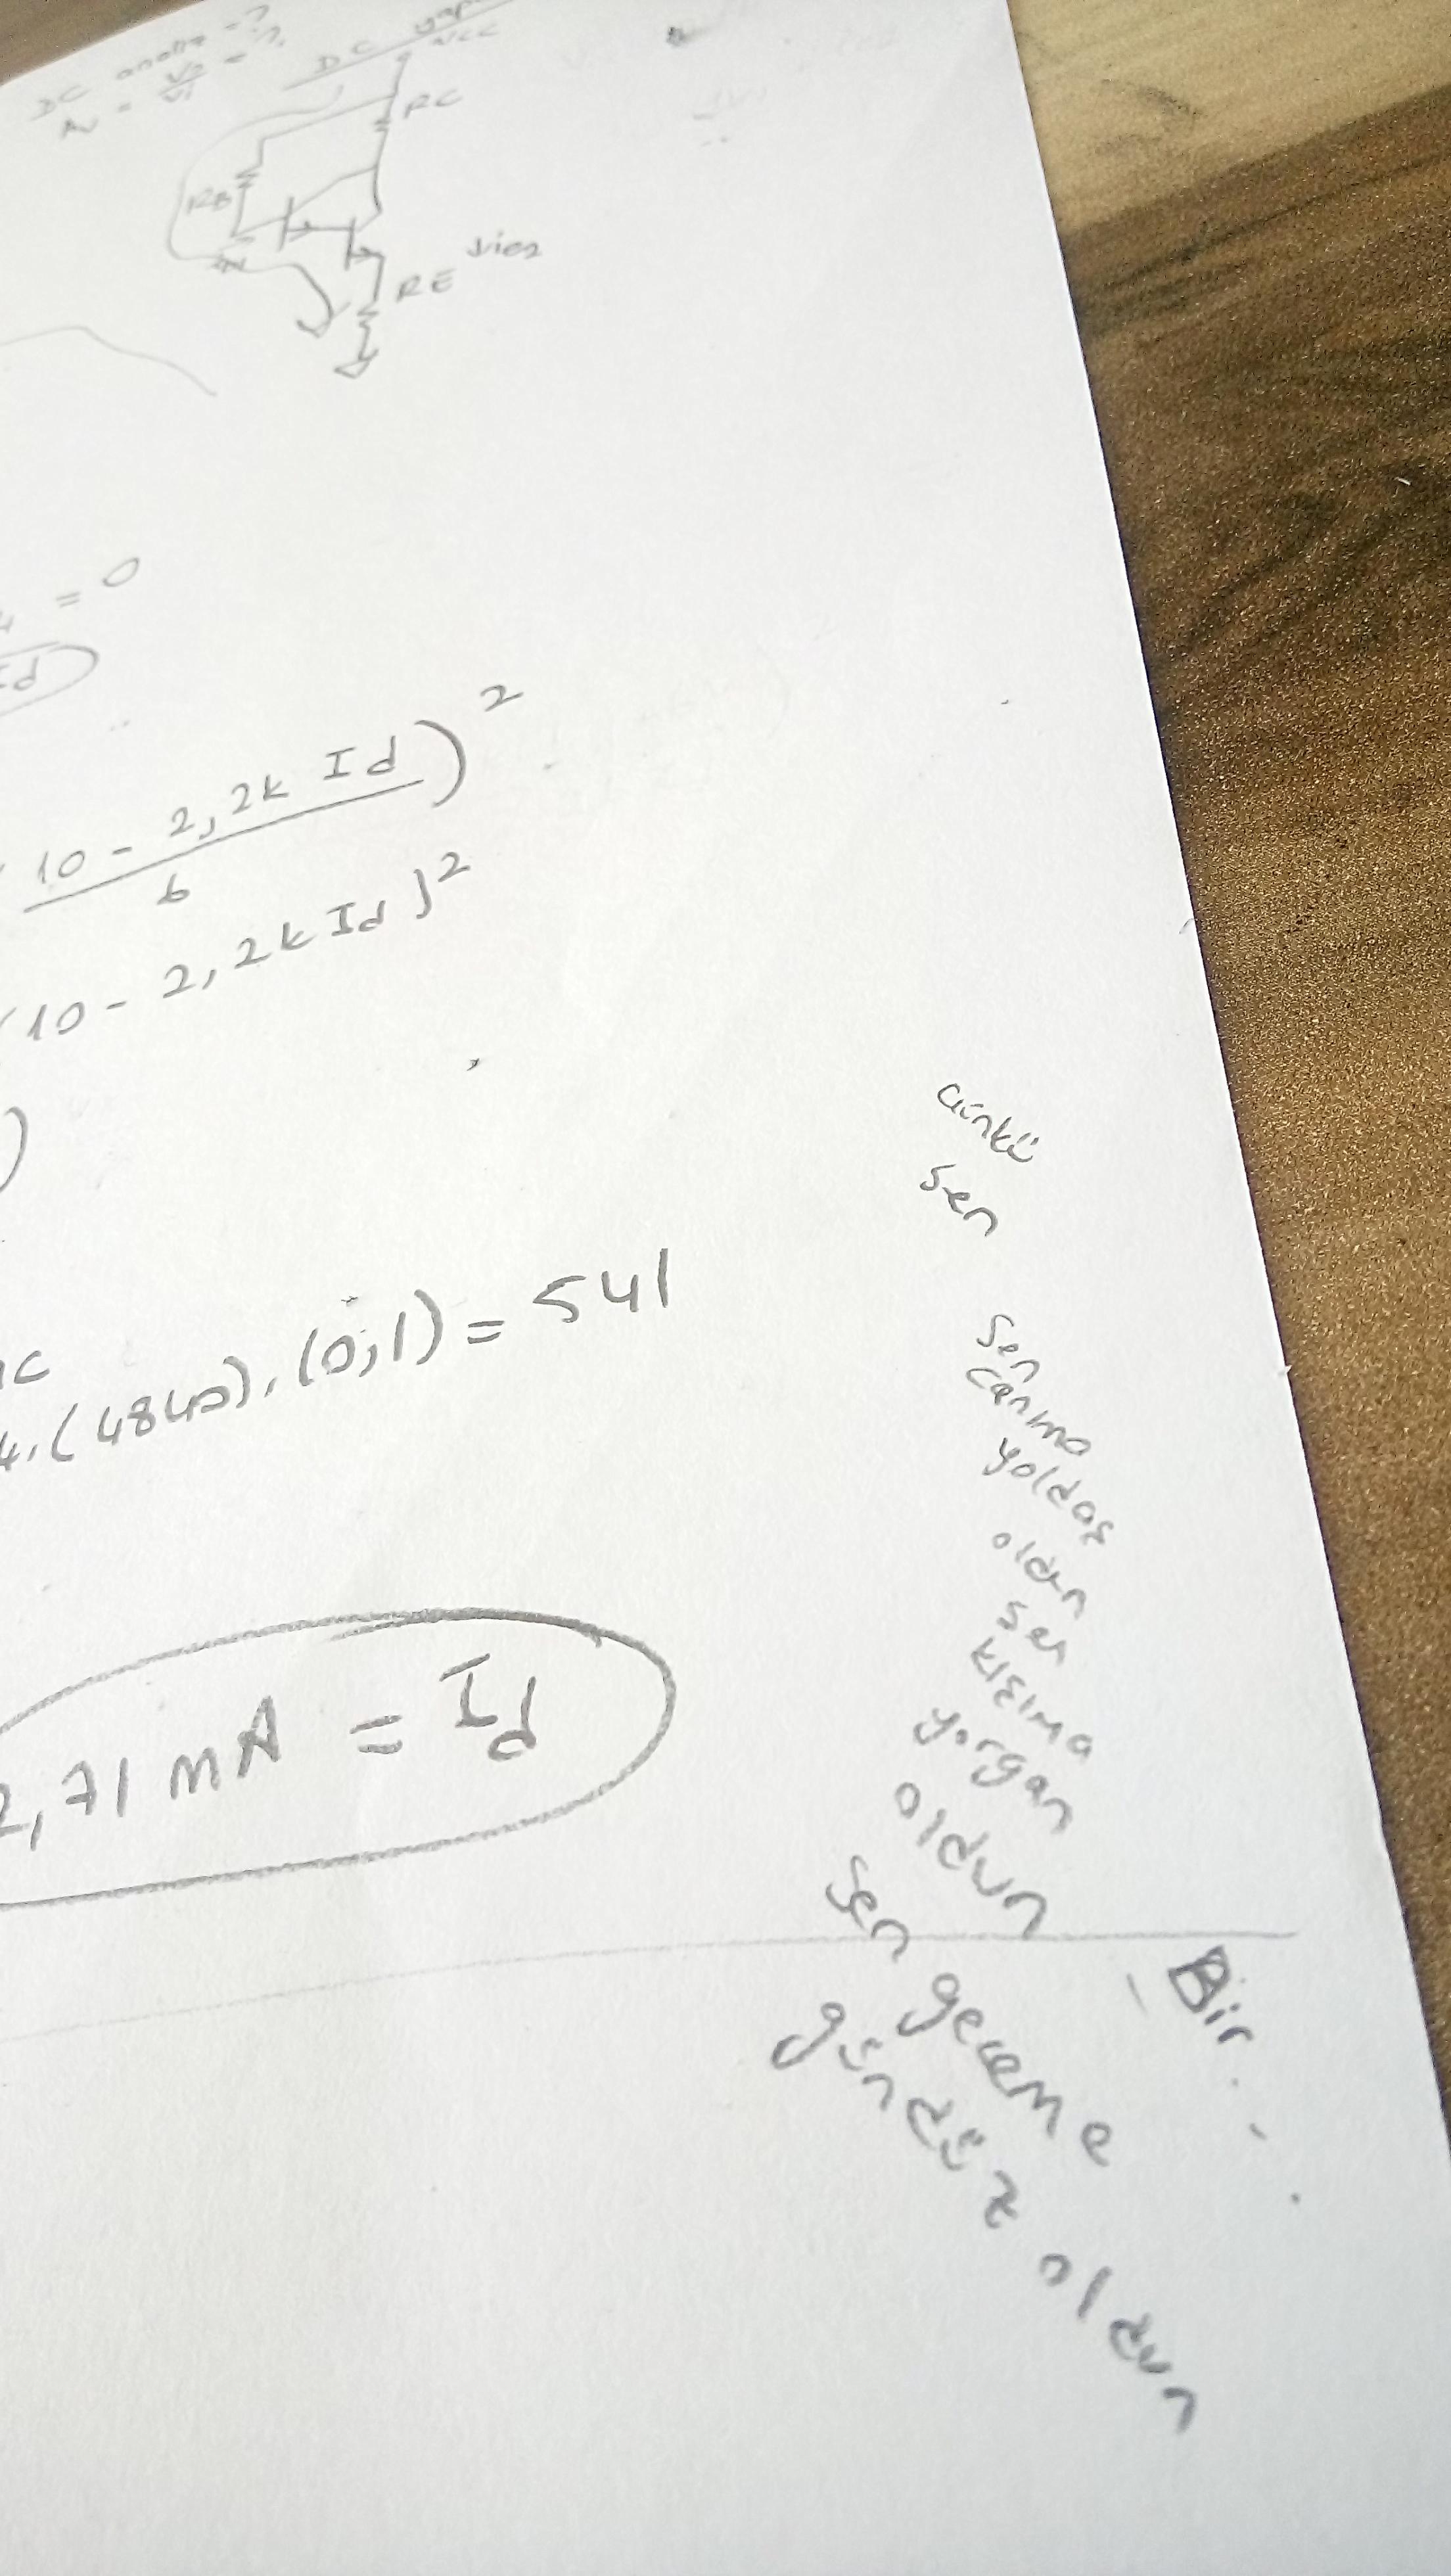 DC analiz = ?
Av = Vo/Vi = ?
DC
VCC
RC
RB
RE
= 0
Id
10 - 2,2k Id )²
6
(10 - 2,2k Id)²
)
4.(4840).(0,1) = 541
2,71 mA = Id
çünkü
sen
sen
canıma
yoldaş
oldun
sen
kışıma
yorgan
oldun
sen geceme
gündüz oldun
Bir...